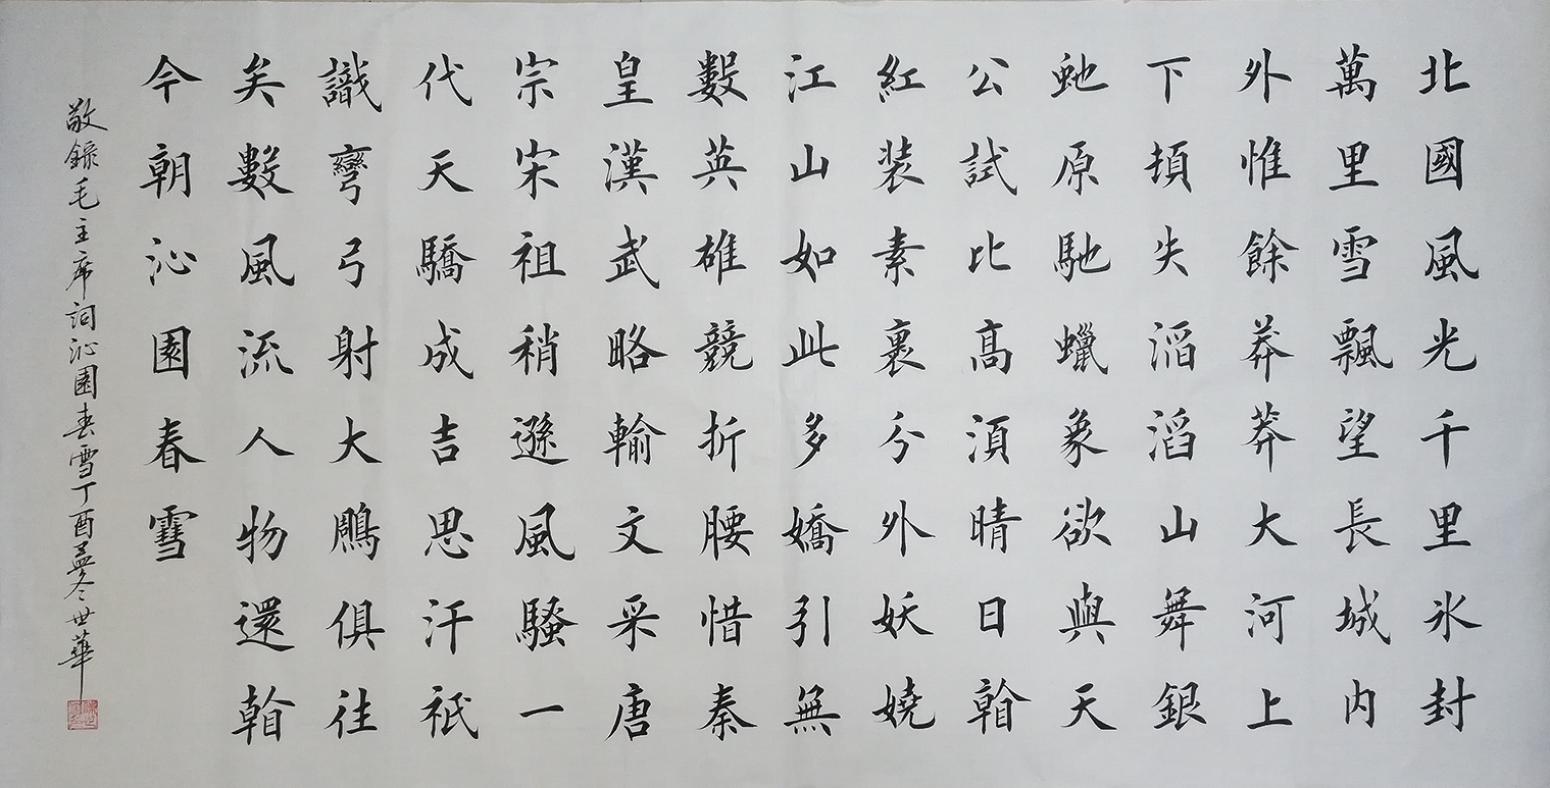 北國風光千里氷封
萬里雪飄望長城内
外惟餘莽莽大河上
下頓失滔滔山舞銀
虵原馳蠟象欲與天
公試比高須晴日看
紅装素裹分外妖娆
江山如此多嬌引無
數英雄競折腰惜秦
皇漢武略輸文采唐
宗宋祖稍遜風騷一
代天驕成吉思汗祇
識彎弓射大鵰俱往
矣數風流人物還看
今朝沁園春雪
敬録毛主席詞沁園春雪丁酉孟冬世華